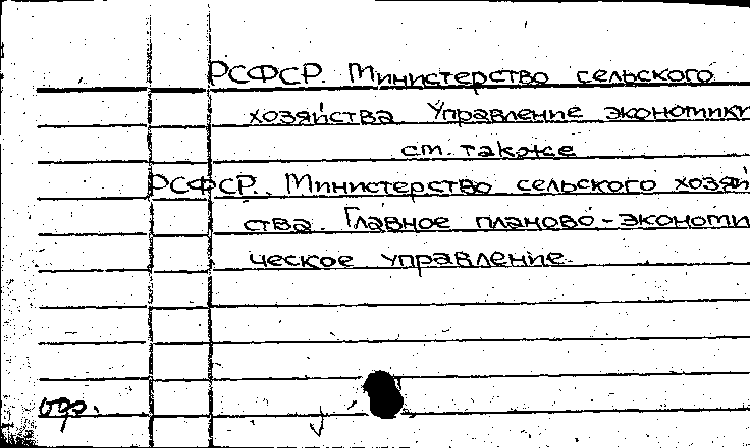 РСФСР. Министерство сельского
хозяйства. Управление экономики
см. также
РСФСР. Министерство сельского хозяй
ства. Главное планово-экономи
ческое управление.